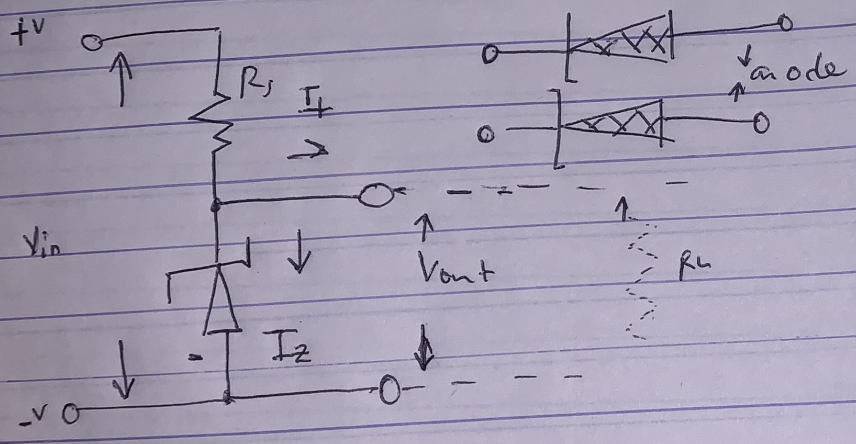 +V
Rs
I+
anode
Vin
Vout
RL
-
Iz
-V